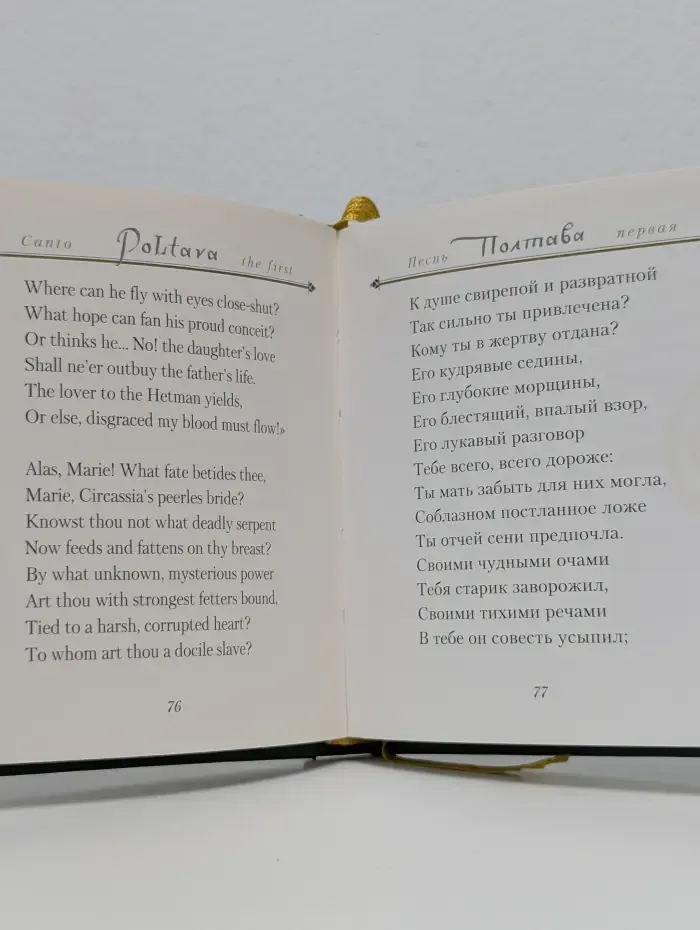 Canto Poltava the first
Where can he fly with eyes close-shut?
What hope can fan his proud conceit?
Or thinks he... No! the daughter's love
Shall ne'er outbuy the father's life.
The lover to the Hetman yields,
Or else, disgraced my blood must flow!»
Alas, Marie! What fate betides thee,
Marie, Circassia's peerles bride?
Knowst thou not what deadly serpent
Now feeds and fattens on thy breast?
By what unknown, mysterious power
Art thou with strongest fetters bound,
Tied to a harsh, corrupted heart?
To whom art thou a docile slave?
76
Песнь Полтава первая
К душе свирепой и развратной
Так сильно ты привлечена?
Кому ты в жертву отдана?
Его кудрявые седины,
Его глубокие морщины,
Его блестящий, впалый взор,
Его лукавый разговор
Тебе всего, всего дороже:
Ты мать забыть для них могла,
Соблазном постланное ложе
Ты отчей сени предпочла.
Своими чудными очами
Тебя старик заворожил,
Своими тихими речами
В тебе он совесть усыпил;
77